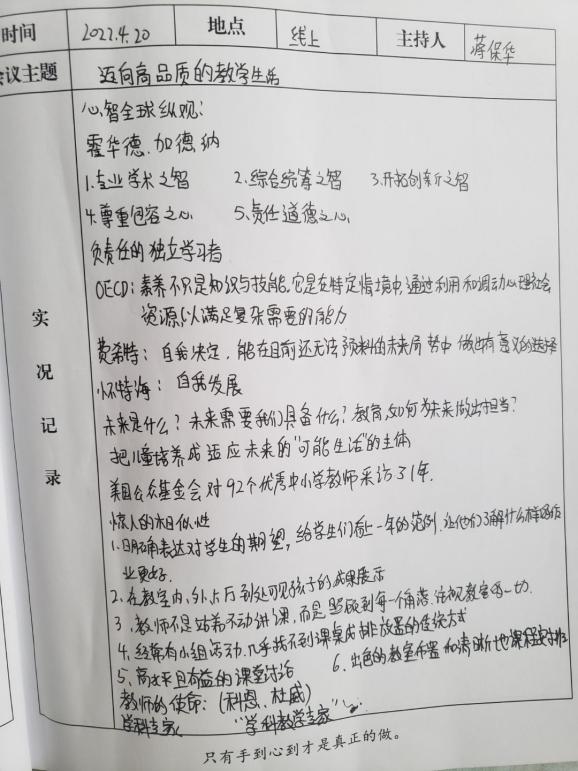 时间 2022.4.20 地点 线上 主持人 蒋保华
会议主题 迈向高品质的教学生活
实况记录
心智全球纵观:
霍华德.加德纳
1.专业学术之智 2.综合统筹之智 3.开拓创新之智
4.尊重包容之心 5.责任道德之心
负责任的独立学习者
OECD:素养不只是知识与技能,它是在特定情境中,通过利用和调动心理社会
资源,以满足复杂需要的能力
费希特:自我决定,能在目前还无法预料的未来局势中做出有意义的选择
怀特海:自我发展
未来是什么?未来需要我们具备什么?教育,如何为未来做出担当?
把儿童培养成适应未来的"可能生活"的主体
美国公众基金会对92个优秀中小学教师采访了1年.
惊人的相似性
1.明确表达对学生的期望,给学生们看上一年的范例.让他们了解什么样的作
业更好.
2.在教室内,外,走厅到处可见孩子的成果展示
3.教师不是站着不动讲课,而是照顾到每一个角落.注视教室的一切.
4.经常有小组活动.几乎找不到课桌成排放置的传统方式
5.高水平且有益的课堂讨论 6.出色的教室布置和清晰地课程安排
教师的使命:(科恩.杜威)
学科专家 "学科教学专家"
只有手到心到才是真正的做。